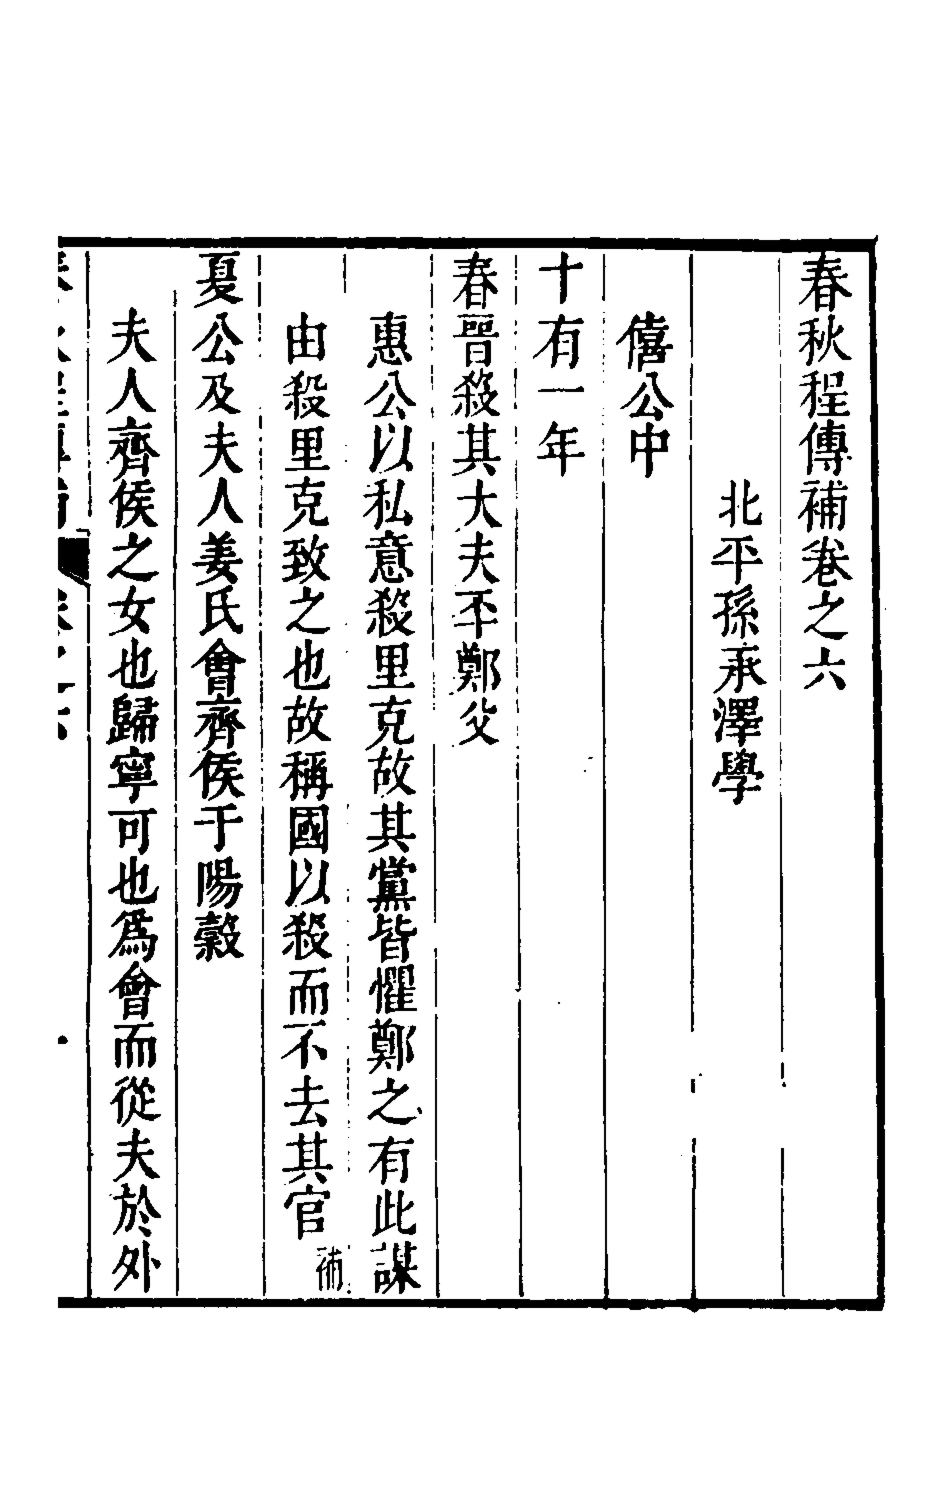 春秋程傳補卷之六
北平孫承澤學
僖公中
十有一年
春晉殺其大夫丕鄭父
惠公以私意殺里克故其黨皆懼鄭之有此謀
由殺里克致之也故稱國以殺而不去其官補
夏公及夫人姜氏會齊侯于陽穀
夫人齊侯之女也歸寧可也爲會而從夫於外